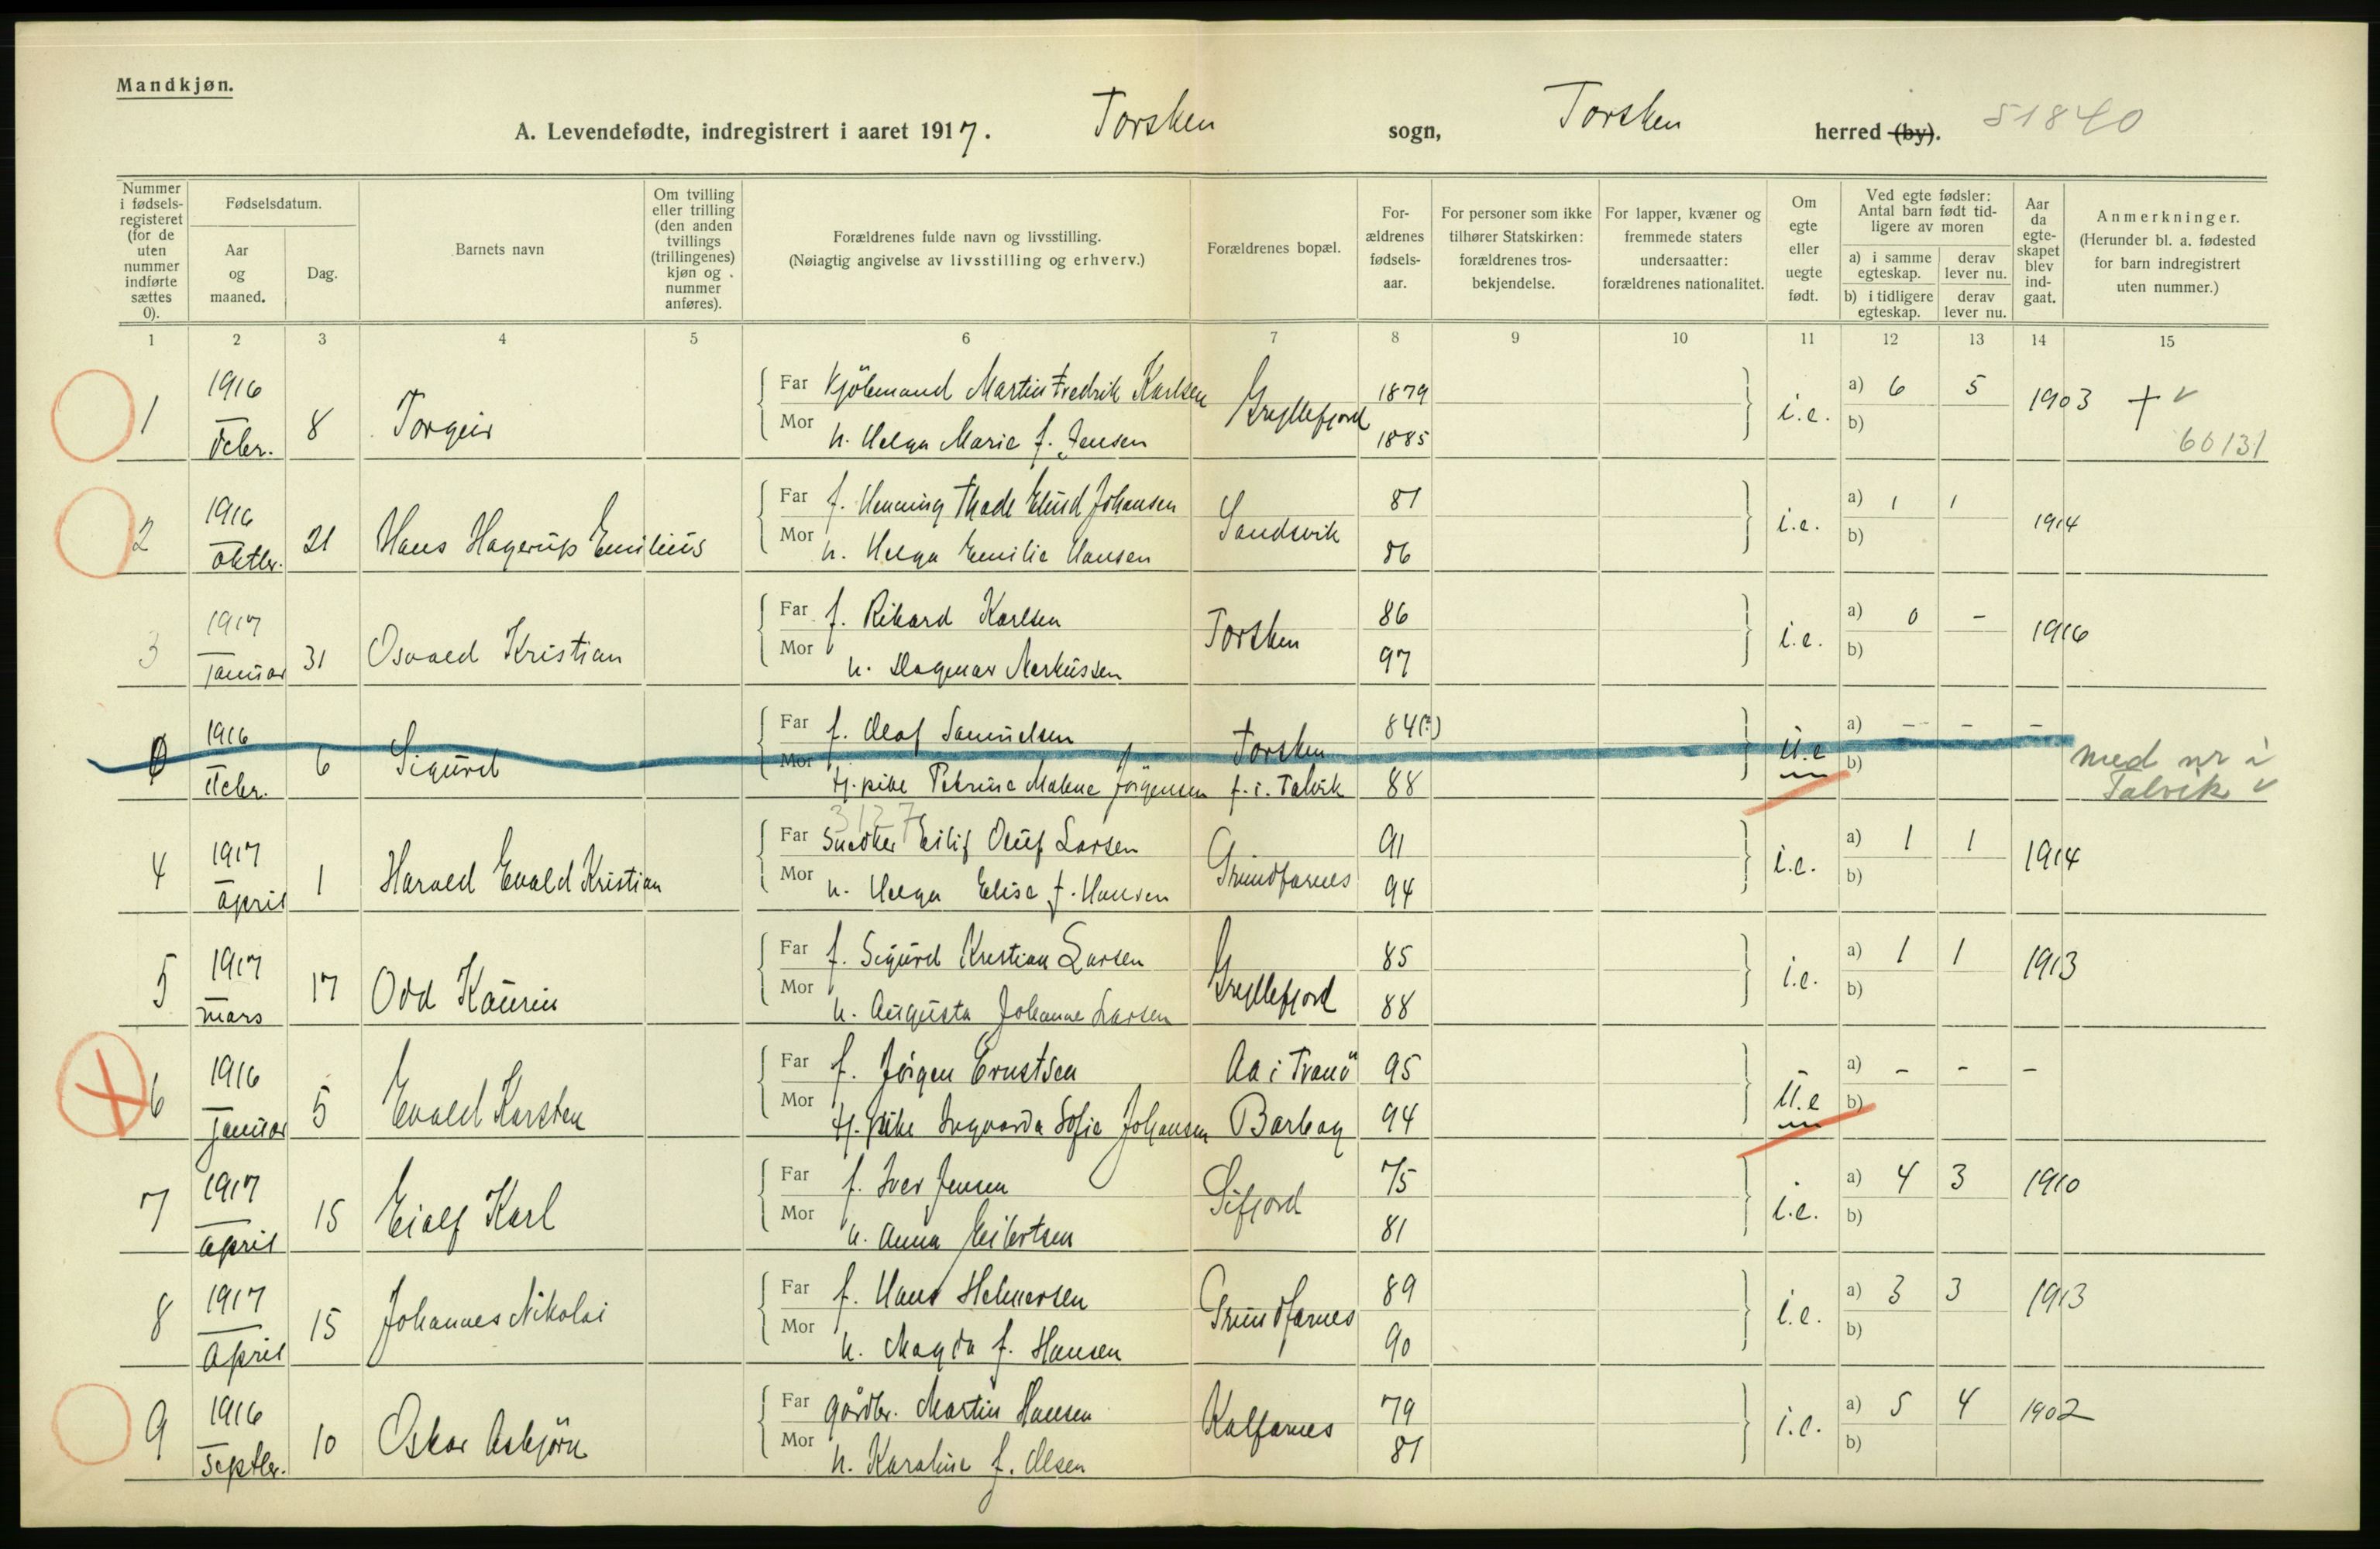 Mandkjøn.
A. Levendefødte, indregistrert i aaret 1917. Torsken sogn, Torsken herred (by). 51840
Nummer i fødselsregisteret (for de uten nummer indførte sættes 0).
Fødselsdatum.
Aar og maaned.
Dag.
Barnets navn
Om tvilling eller trilling (den anden tvillings (trillingenes) kjøn og nummer anføres).
Forældrenes fulde navn og livsstilling.
(Nøiagtig angivelse av livsstilling og erhverv.)
Forældrenes bopæl.
Forældrenes fødselsaar.
For personer som ikke tilhører Statskirken: forældrenes trosbekjendelse.
For lapper, kvæner og fremmede staters undersaatter: forældrenes nationalitet.
Om egte eller uegte født.
Ved egte fødsler: Antal barn født tidligere av moren
a) i samme egteskap. derav lever nu.
b) i tidligere egteskap. derav lever nu.
Aar da egteskapet blev indgaat.
Anmerkninger.
(Herunder bl. a. fødested for barn indregistrert uten nummer.)
1 2 3 4 5 6 7 8 9 10 11 12 13 14 15
1 1916 8 Torgeir
Far Kjöbmand Martin Fredrik Karlsen Gryllefjord 1879 i.e. a) 6 5 1903 + v
Mor h. Helga Marie f. Jensen 1885 b) 60131
2 1916 Oktbr. 21 Hans Hagerup Emilius
Far f. Henning Thode Johansen Sandsvik 81 i.e. a) 1 1 1914
Mor h. Helga Emilie Hansen 86 b)
3 1917 Januar 31 Osvald Kristian
Far f. Rikard Karlsen Torsken 86 i.e. a) 0 - 1916
Mor h. Dagmar Markussen 97 b)
0 1916 6 Sigurd
Far f. Olaf Samuelsen Torsken 84(?) u.e a) - - -
Mor tj. pike Petrine Malene Jörgensen f. i. Talvik 88 b) med nr i Talvik v
3127
4 1917 April 1 Harald Evald Kristian
Far Snedker Eilif Oluf Larsen Grundfarnes 91 i.e. a) 1 1 1914
Mor h. Helga Elise f. Hansen 94 b)
5 1917 mars 17 Odd Kaurin
Far f. Sigurd Kristian Larsen Gryllefjord 85 i.e. a) 1 1 1913
Mor h. Augusta Johanne Larsen 88 b)
6 1916 Januar 5 Evald Karsten
Far f. Jörgen Ernstsen Aa i Tranö 95 u.e a) - - -
Mor tj. pike Ingvarda Sofie Johansen Barbog 94 b)
7 1917 April 15 Eialf Karl
Far f. Iver Jensen Sifjord 75 i.e. a) 4 3 1910
Mor h. Anna Eilertsen 81 b)
8 1917 April 15 Johannes Nikolai
Far f. Hans Helmersen Grundfarnes 89 i.e. a) 3 3 1913
Mor h. Magda f. Hansen 90 b)
9 1916 Septbr. 10 Oskar Asbjörn
Far gårdbr. Martin Hansen Kalfarnes 79 i.e. a) 5 4 1902
Mor h. Karoline f. Olsen 81 b)